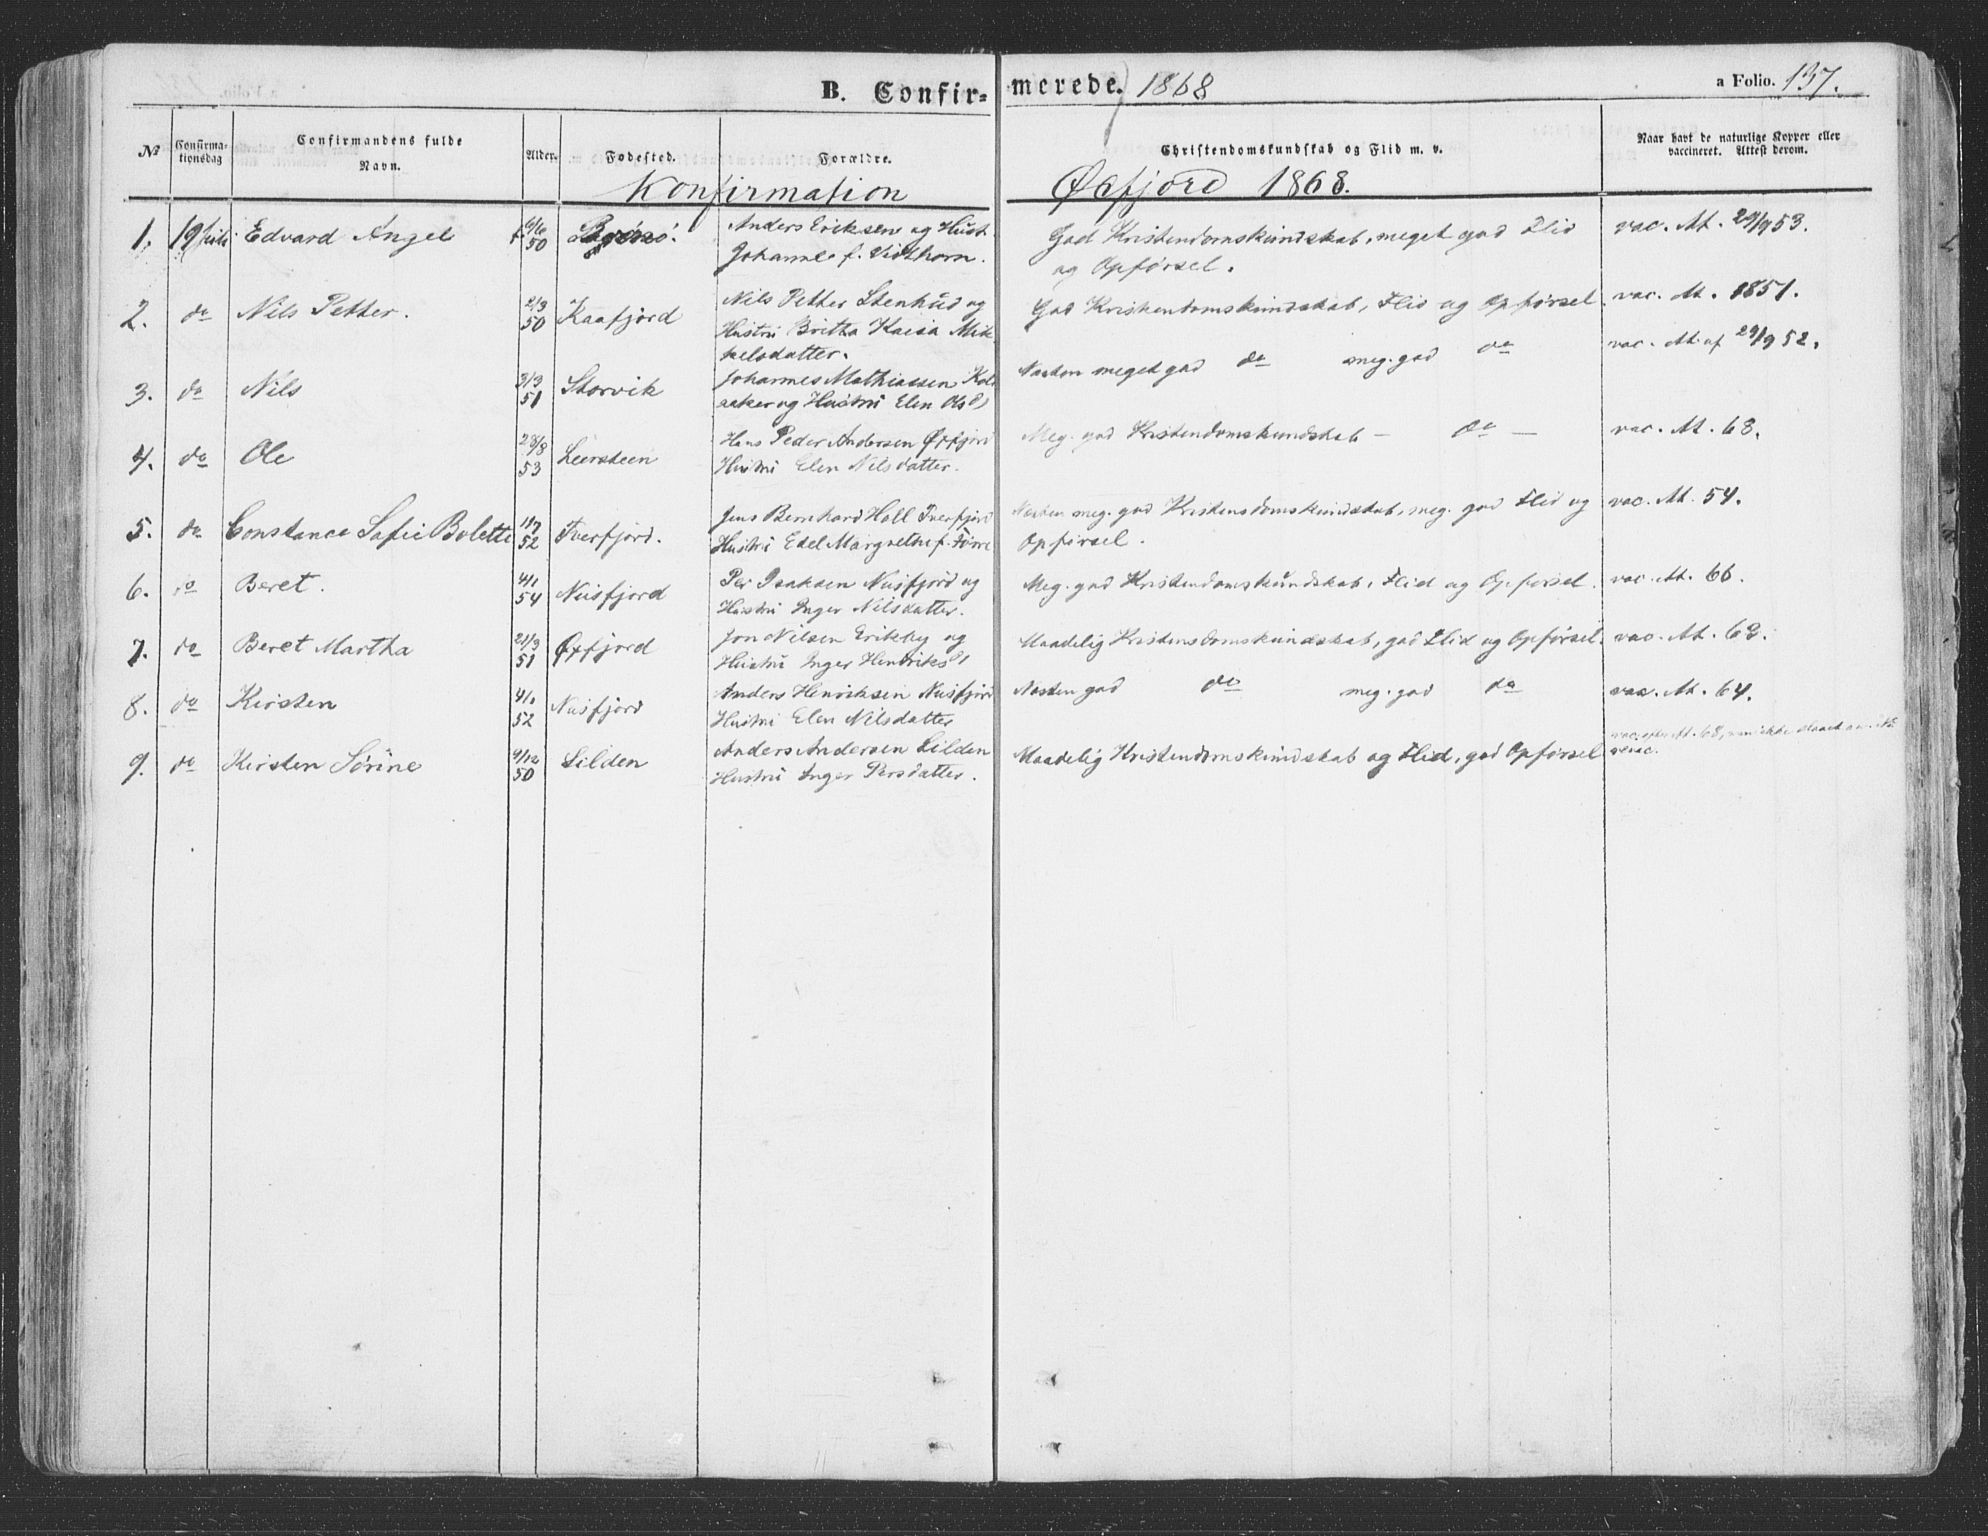 B. Confir=
merede. 1868
a Folio. 137.
№
Confirma-
tionsdag
Confirmandens fulde
Navn.
Alder.
Fødested.
Forældre.
Christendomskundskab og Flid m. v.
Naar havt de naturlige Kopper eller
vaccineret. Attest derom.
Konfirmasion
Øxfjord 1868.
1. 19 Juli Edvard Angel f. 6/6 50 Anders Eriksen og Hust. God Kristendomskundskab, meget god Flid vac. At. 29/9 53.
Johanne f. Vidthorn. og Opførsel.
2. do Nils Petter. 2/3 50 Kaafjord Nils Petter Stenhud og God Kristendomskundskab, Flid og Opførsel vac. At. 1851.
Hustru Britha Kaisa Mik-
kelsdatter.
3. do Nils 3/3 51 Storvik Johannes Mathiassen Næsten meget god do meg. god do vac. At. af 29/9 52.
aaker og Hustru Elen Olsd
4. do Ole 28/8 53 Leersteen Hans Peder Andersen Øxfjord Meg. god Kristendomskundskab – do – vac. At. 68.
Hustru Elen Nilsdatter.
5. do Constance Safie Bolette 52 Tverfjord. Jens Bernhard Holl Tverfjord Næsten meg. god Kristensdomskundskab, meg. god Flid og vac. At. 54.
Hustru Edel Margrethe f. Opførsel.
6. do Beret. 4/1 54 Nusfjord Per Isaksen Nusfjord og Meg. god Kristendomskundskab, Flid og Opførsel. vac. At. 66.
Hustru Inger Nilsdatter.
7. do Beret Martha 21/3 51 Øxfjord Jon Nilsen Erikby og Maadelig Kristensdomskundskab, god Flid og Opførsel. vac. At. 68.
Hustru Inger Hendriksd
8. do Kirsten 4/1 52 Nusfjord Anders Henriksen Nusfjord Næsten god do meg. god do vac. At. 64.
Hustru Elen Nilsdatter
9. do Kirsten Sørine 9/12 50 Lilden Anders Andersen Lilden Maadelig Kristendomskundskab og Flid, god Opførsel vac. efter At. 68,
Hustru Inger Persdatter.